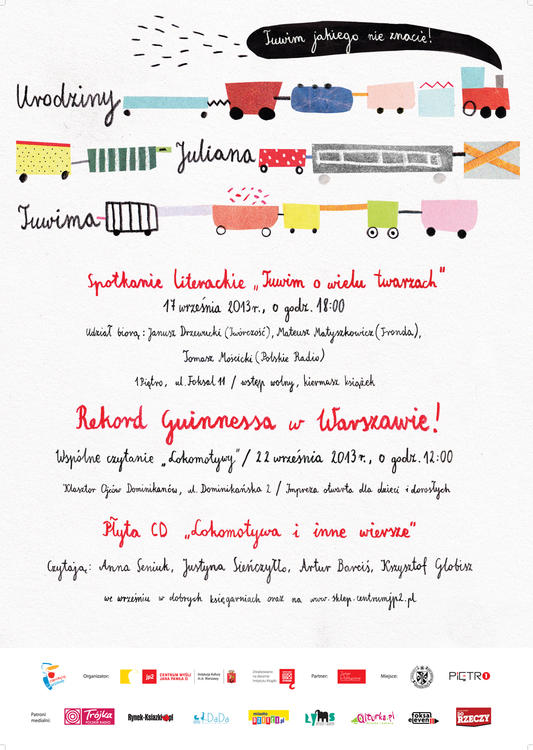 Tuwim jakiego nie znacie!
Urodziny
Juliana
Tuwima
Spotkanie literackie „Tuwim o wielu twarzach"
17 września 2013 r., o godz. 18:00
Udział biorą: Janusz Drzewucki (Twórczość), Mateusz Matyszkowicz (Fronda),
Tomasz Mościcki (Polskie Radio)
1Piętro, ul. Foksal 11 / wstęp wolny, kiermasz książek
Rekord Guinnessa w Warszawie!
Wspólne czytanie „Lokomotywy" / 22 września 2013 r., o godz. 12:00
Klasztor Ojców Dominikanów, ul. Dominikańska 2 / Impreza otwarta dla dzieci i dorosłych
Płyta CD „Lokomotywa i inne wiersze"
Czytają: Anna Seniuk, Justyna Sieńczyłło, Artur Barciś, Krzysztof Globisz
we wrześniu w dobrych księgarniach oraz na www.sklep.centrumjp2.pl
Organizator: jp2 CENTRUM MYŚLI JANA PAWŁA II Instytucja Kultury m.st. Warszawy Partner: Miejsce: PIĘTRO 1
Patroni medialni: Trójka POLSKIE RADIO Rynek-Ksiazki.pl DaDa miasto dzieci.pl ŁYMS Qlturka.pl foksal eleven DO RZECZY